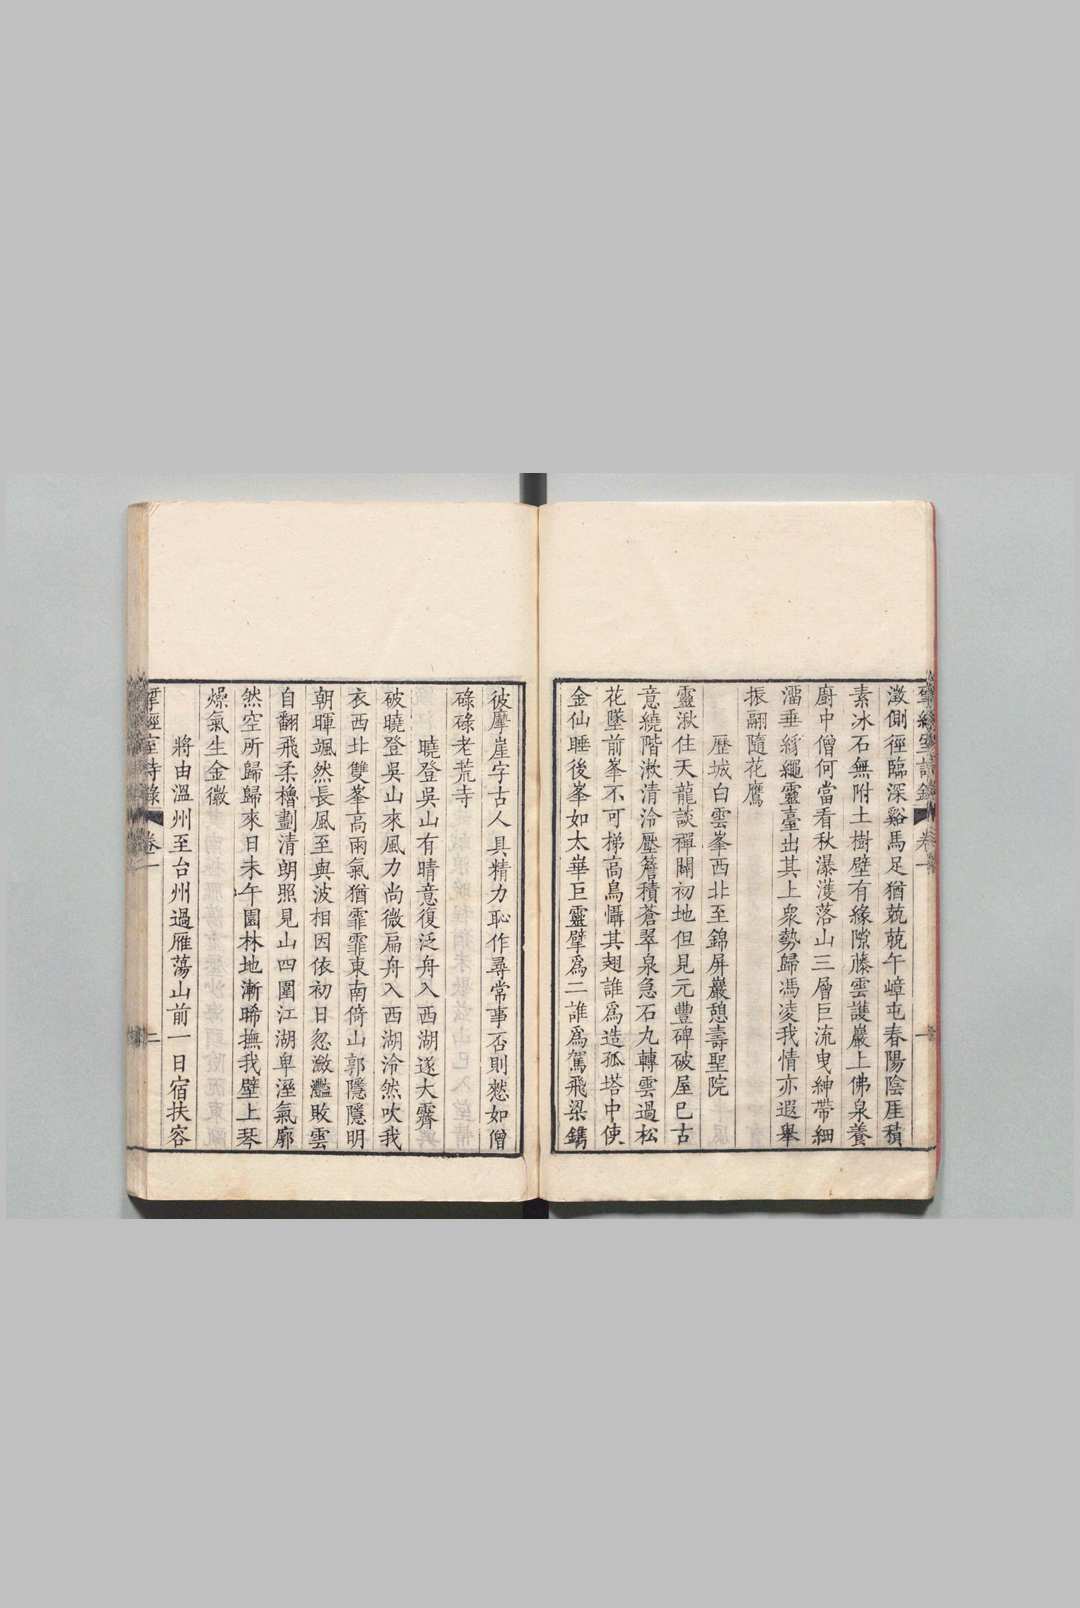 澂側徑臨深谿馬足猶兢兢午嶂屯春陽陰厓積
素冰石無附土樹壁有緣隙藤雲護巖上佛泉養
廚中僧何當看秋瀑濩落山三層巨流曳紳帶細
溜垂絺繩靈臺出其上衆勢歸馮凌我情亦遐舉
振翮隨花鷹
歷城白雲峯西北至錦屏巖憩壽聖院
靈湫住天龍談禪闢初地但見元豐碑破屋巳古
意繞階漱清泠壓簷積蒼翠泉急石丸轉雲過松
花墜前峯不可梯高鳥懾其翅誰爲造孤塔中使
金仙睡後峯如太華巨靈擘爲二誰爲駕飛梁鐫
彼摩崖字古人具精力恥作尋常事否則愁如僧
碌碌老荒寺
曉登吳山有晴意復泛舟入西湖遂大霽
破曉登吳山來風力尚微扁舟入西湖泠然吹我
衣西北雙峯高雨氣猶霏霏東南倚山郭隱隱明
朝暉颯然長風至與波相因依初日忽瀲灩敗雲
自翻飛柔櫓劃清朗照見山四圍江湖卑溼氣廓
然空所歸歸來日未午園林地漸晞撫我壁上琴
燥氣生金徽
將由溫州至台州過雁蕩山前一日宿扶容
揅經室詩錄 卷一 二